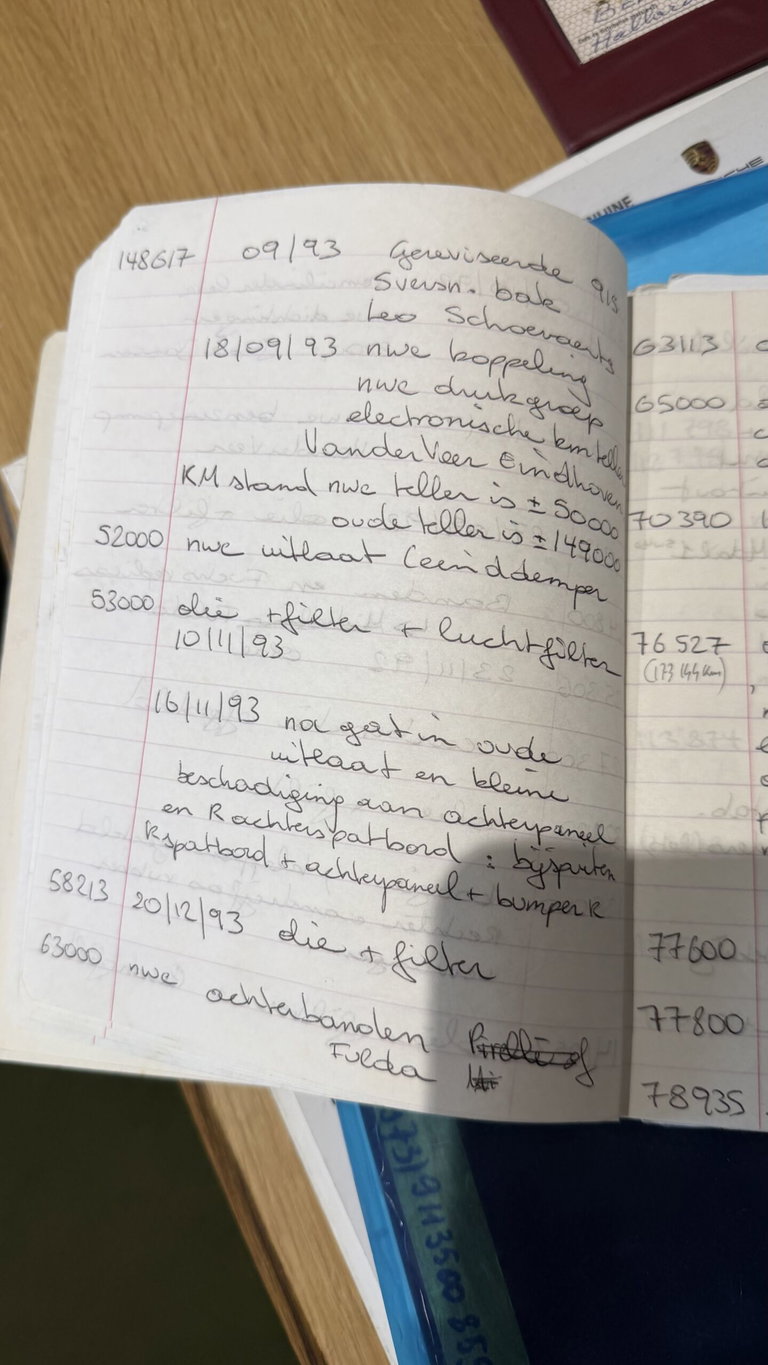 148617 09/93 Gereviseerde 915
5versn. bak
Leo Schoevaerts
18/09/93 nwe koppeling
nwe drukgroep
electronische km teller
VanderVeer Eindhoven
KM stand nwe teller is ± 50000
oude teller is ± 149000
52000 nwe uitlaat (einddemper
53000 olie + filter + luchtfilter
10/11/93
16/11/93 na gat in oude
uitlaat en kleine
beschadiging aan achterpaneel
en R achterspatbord : bijspuiten
R spatbord + achterpaneel + bumper R
58213 20/12/93 olie + filter
63000 nwe achterbanden
Fulda
63113
65000
70390
76527
(173144 km)
77600
77800
78935